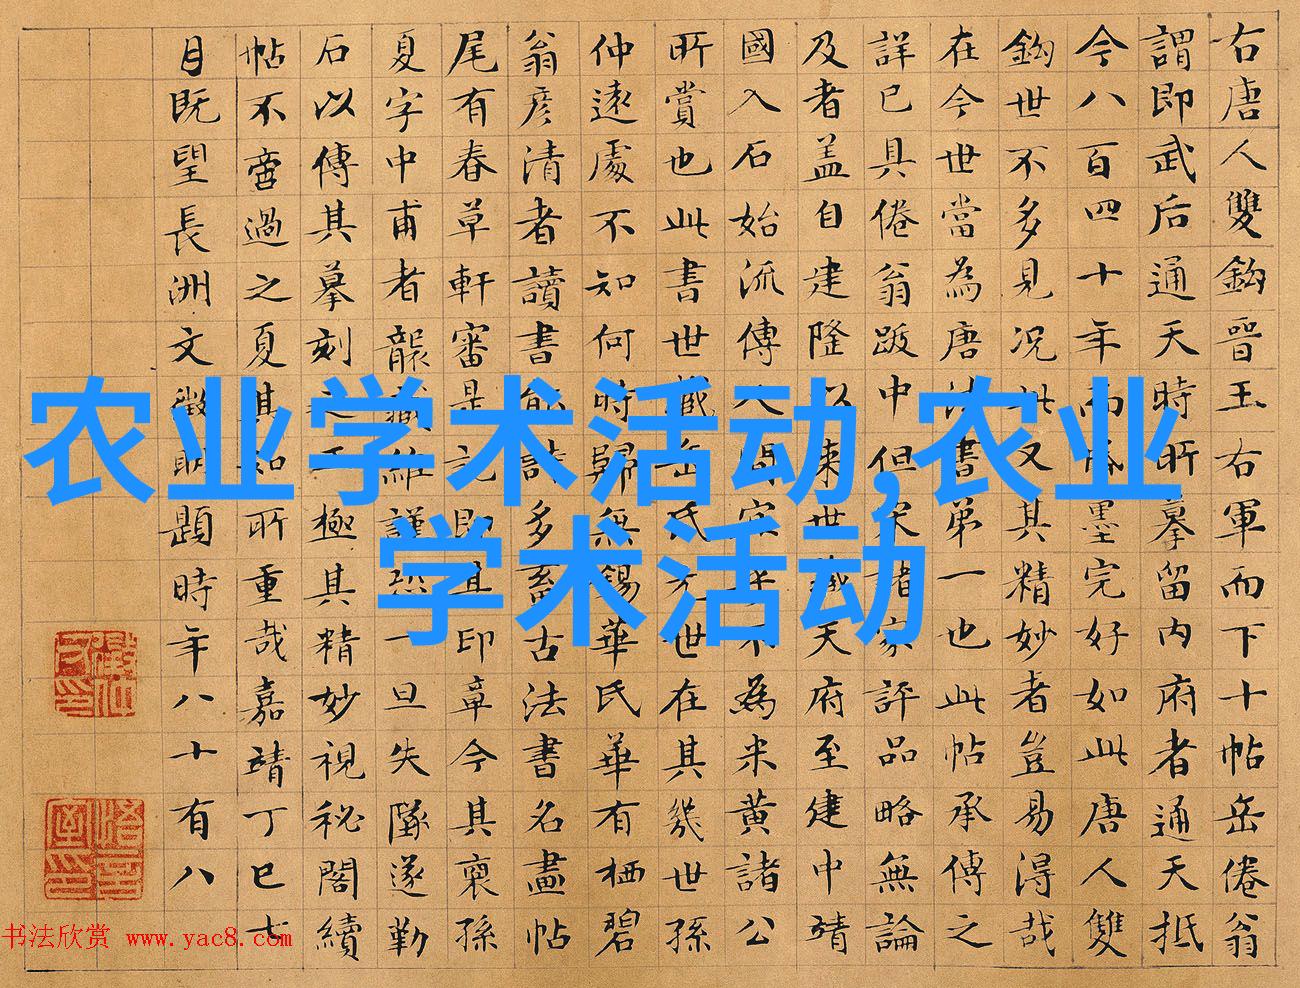 右唐人雙鈎晉王右軍而下十帖岳倦翁
謂即武后通天時所摹留內府者通天抵
今八百四十年而墨完好如此唐人雙
鈎世不多見况此又其精妙者豈易得哉
在今世當為唐法書第一也此帖承傳之
詳已具倦翁跋中但宋者家評品略無論
及者盖自建隆以來世藏天府至建中靖
國入石始流傳人間宋不為米黃諸公
所賞也此書世藏岳氏世在其幾世孫
仲遠處不知何時歸無錫華氏華有栖碧
翁彥清者讀書能詩多畜古法書名畫帖
尾有春草軒審是記即其印章今其裔孫
夏字中甫者襲藏維謹恐一旦失墜遂勒
石以傳其摹刻極其精妙視秘閣續
帖不啻過之夏其知所重哉嘉靖丁巳七
月既望長洲文徵明題時年八十有八
农业学术活动,农业
学术活动
书法欣赏 www.yac8.com